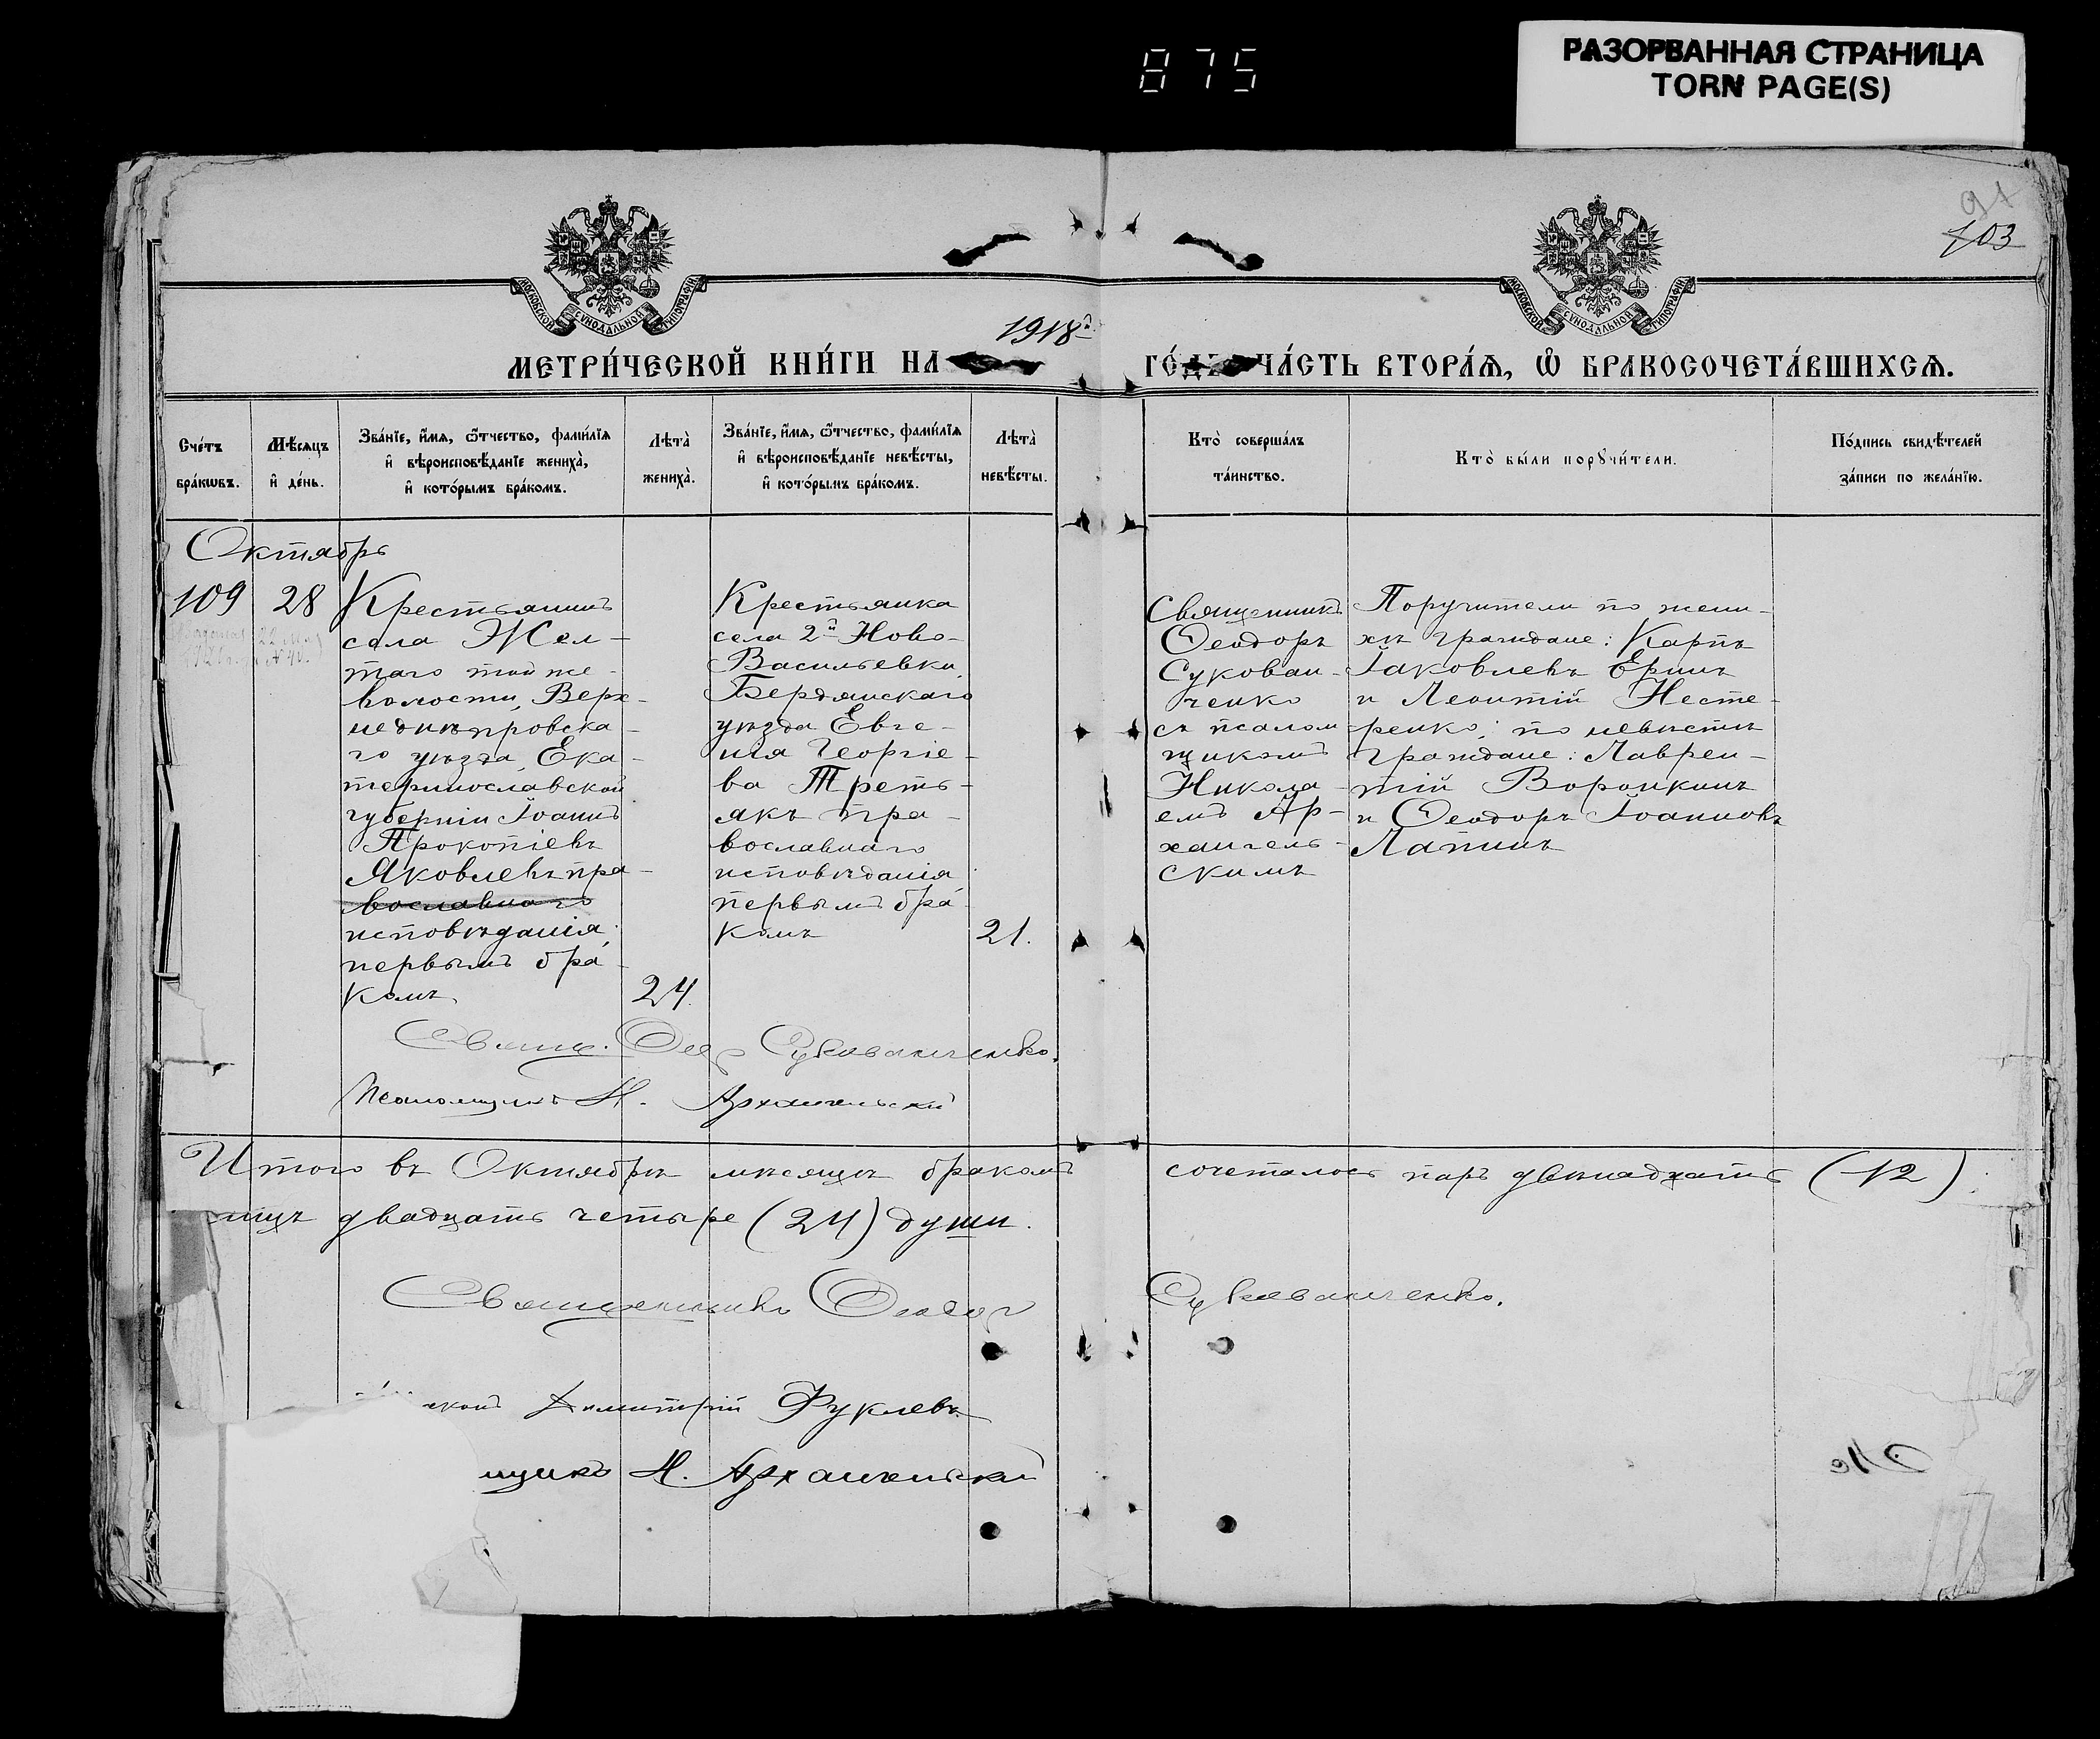 875
РАЗОРВАННАЯ СТРАНИЦА
TORN PAGE(S)
91
103
МОСКОВСКОЙ СѴНОДАЛЬНОЙ ТИПОГРАФІИ
МОСКОВСКОЙ СѴНОДАЛЬНОЙ ТИПОГРАФІИ
1918 г.
МЕТРИ́ЧЕСКОЙ КНИ́ГИ НА
ГО́ДЪ ЧА́СТЬ ВТОРА́Ѧ, Ѽ БРАКОСОЧЕТА́ВШИХСѦ.
Сче́тъ
бра́кѡвъ.
Мѣ́сѧцъ
и҆ де́нь.
Зва́нїе, и҆́мѧ, ѻ҆́тчество, фами́лїѧ
и҆ вѣроисповѣ́данїе жениха̀,
и҆ кото́рымъ бра́комъ.
Лѣта̀
жениха̀.
Зва́нїе, и҆́мѧ, ѻ҆́тчество, фами́лїѧ
и҆ вѣроисповѣ́данїе невѣ́сты,
и҆ кото́рымъ бра́комъ.
Лѣта̀
невѣ́сты.
Кто̀ соверша́лъ
та́инство.
Кто̀ бы́ли порꙋчи́тели.
По́дпись свидѣ́телей
за́писи по жела́нїю.
Октябрь
109
28
Крестьянинъ
села Жел-
таго той же
волости, Верх-
недниѣпровска-
го уѣзда, Ека-
теринославской
губерніи Іоаннъ
Прокопіевъ
Яковлевъ пра-
вославнаго
исповѣданія,
первымъ бра-
комъ.
24.
Крестьянка
села 2й Ново-
Васильевки,
Бердянскаго
уѣзда Евге-
нія Георгіе-
ва Треть-
якъ пра-
вославнаго
исповѣданія
первымъ бра-
комъ
21.
Священникъ
Ѳеодоръ
Сукован-
ченко
съ псалом
щикомъ
Никола-
емъ Ар-
хангель-
скимъ
Поручители по жени-
хѣ граждане: Карпъ
Іаковлевъ Еринъ
и Леонтій Несте-
ренко; по невѣстѣ
граждане: Лаврен-
тій Воронкинъ
и Ѳеодоръ Іоанновъ
Лапинъ
Свящ. Ѳеод Сукованченко.
Псаломщикъ Н. Архангельскій
Итого въ Октябрѣ мѣсяцѣ бракомъ сочеталось паръ двѣнадцать (12).
лицъ двадцать четыре (24) души.
Священникъ Ѳеодор Сукованченко.
Димитрій Фуклевъ
щикъ Н. Архангельскій